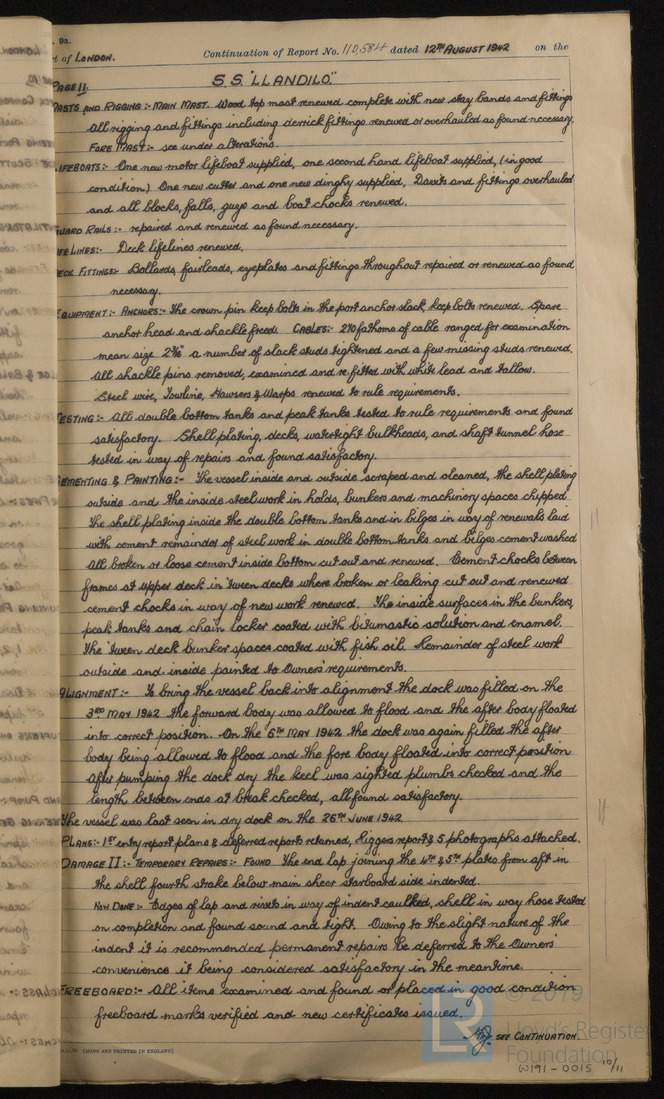 9a.
t of LONDON. Continuation of Report No. 110,584 dated 12TH AUGUST 1942 on the
PAGE 11. S.S. "LLANDILO".
ASTS AND RIGGING:- MAIN MAST. Wood top mast renewed complete with new stay bands and fittings
All rigging and fittings including derrick fittings renewed or overhauled as found necessary.
FORE MAST:- see under alterations.
IFEBOATS:- One new motor lifeboat supplied, one second hand lifeboat supplied, (in good
condition) One new cutter and one new dinghy supplied, Davits and fittings overhauled
and all blocks, falls, guys and boat chocks renewed.
UARD RAILS:- repaired and renewed as found necessary.
FE LINES:- Deck lifelines renewed.
ECK FITTINGS:- Bollards, fairleads, eyeplates and fittings throughout repaired or renewed as found
necessary.
EQUIPMENT:- ANCHORS:- The crown pin keep bolts in the port anchor slack, keep bolts renewed. Spare
anchor head and shackle freed. CABLES:- 270 fathoms of cable ranged for examination
mean size 2 a number of slack studs tightened and a few missing studs renewed.
All shackle pins removed, examined and refitted with white lead and tallow.
Steel wire, Towline, Hawsers & Warps renewed to rule requirements.
ESTING:- All double bottom tanks and peak tanks tested to rule requirements and found
satisfactory. Shell plating, decks, watertight bulkheads, and shaft tunnel hose
tested in way of repairs and found satisfactory.
EMENTING & PAINTING:- The vessel inside and outside scraped and cleaned, the shell plating
outside and the inside steelwork in holds, bunkers and machinery spaces chipped.
The shell plating inside the double bottom tanks and in bilges in way of renewals laid
with cement remainder of steel work in double bottom tanks and bilges cement washed
All broken or loose cement inside bottom cut out and renewed. Cement chocks between
frames at upper deck in 'tween decks where broken or leaking cut out and renewed
cement chocks in way of new work renewed. The inside surfaces in the bunkers,
peak tanks and chain locker coated with bitumastic solution and enamel.
The 'tween deck bunker spaces coated with fish oil. Remainder of steel work
outside and inside painted to Owners' requirements.
ALIGNMENT:- To bring the vessel back into alignment the dock was filled on the
3RD MAY 1942 the forward body was allowed to flood and the after body floated
into correct position. On the 6TH MAY 1942 the dock was again filled the after
body being allowed to flood and the fore body floated into correct position
After pumping the dock dry the keel was sighted plumbs checked and the
length between ends at break checked, all found satisfactory.
The vessel was last seen in dry dock on the 26TH JUNE 1942
PLANS:- 1st entry report plans & deferred reports returned, Riggers report & 5 photographs attached.
DAMAGE II:- TEMPORARY REPAIRS:- FOUND The end lap joining the 4TH & 5TH plates from aft in
the shell fourth strake below main sheer starboard side indented.
NOW DONE:- Edges of lap and rivets in way of indent caulked, shell in way hose tested
on completion and found sound and tight. Owing to the slight nature of the
indent it is recommended permanent repairs be deferred to the Owners'
convenience it being considered satisfactory in the meantime.
FREEBOARD:- All items examined and found or placed in good condition
freeboard marks verified and new certificates issued.
SEE CONTINUATION.
(MADE AND PRINTED IN ENGLAND)
LR © 2019
Lloyd's Register
Foundation
W191-0015 10/11